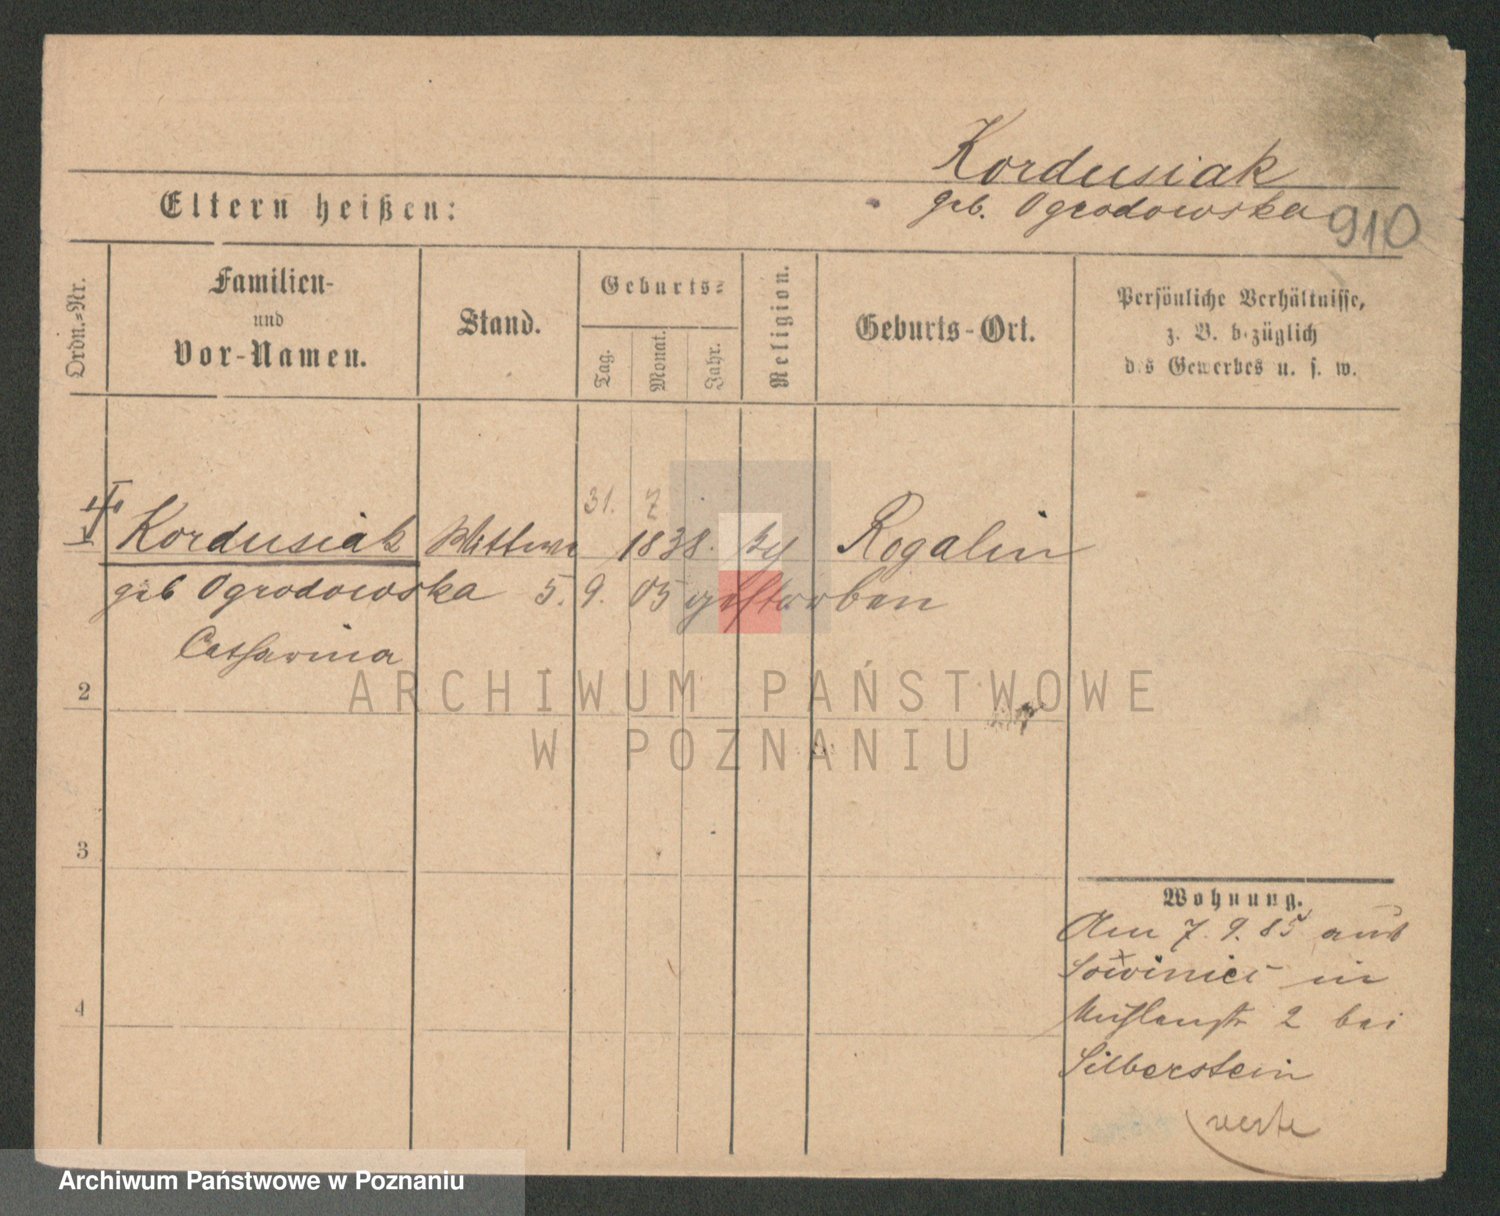 Kordusiak
geb. Ogrodowska
910
Eltern heißen:
Ordn.-Nr.
Familien-
und
Vor-Namen.
Stand.
Geburts-
Tag.
Monat.
Jahr.
Religion.
Geburts-Ort.
Persönliche Verhältnisse,
z. B. bezüglich
des Gewerbes u. s. w.
31. 7.
1
Kordusiak Wittwe 1838. Rogalin
geb Ogrodowska 5. 9. 05 gestorben
Catharina
2
3
4
Wohnung.
Am 7. 9. 85 aus
in
2 bei
Silberstein
verte
ARCHIWUM PAŃSTWOWE
W POZNANIU
Archiwum Państwowe w Poznaniu